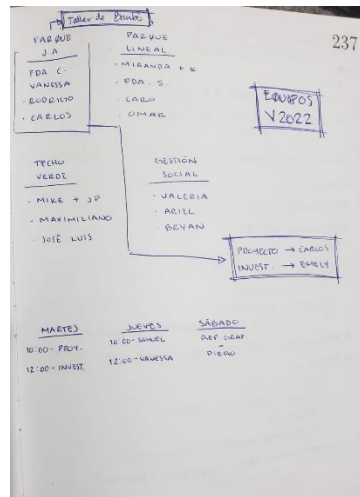 Taller de Barrio
237
PARQUE
J.A
· FDA C.
VANESSA
· RODRIGO
· CARLOS
PARQUE
LINEAL
· MIRANDA + K
· FDA. S.
· CARO
· OMAR
EQUIPOS
V2022
TECHO
VERDE
· MIKE + JP
· MAXIMILIANO
· JOSÉ LUIS
GESTIÓN
SOCIAL
· VALERIA
· ARIEL
· BRYAN
PROYECTO → CARLOS
INVEST. → EMELY
MARTES
10:00 - PROY.
12:00 - INVEST.
JUEVES
10:00 - SAMUEL
12:00 - VANESSA
SÁBADO
REP GRAF.
-
DIEGO